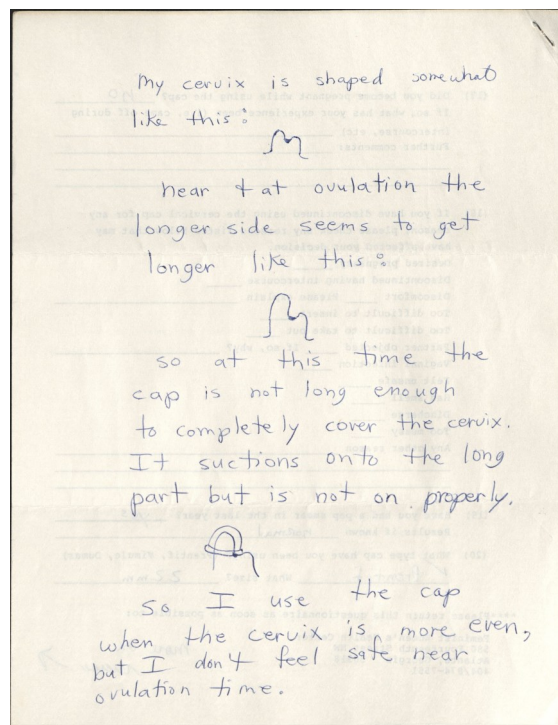 My cervix is shaped somewhat
like this:
near & at ovulation the
longer side seems to get
longer like this:
so at this time the
cap is not long enough
to completely cover the cervix.
It suctions onto the long
part but is not on properly.
so I use the cap
when the cervix is more even,
but I don't feel safe near
ovulation time.